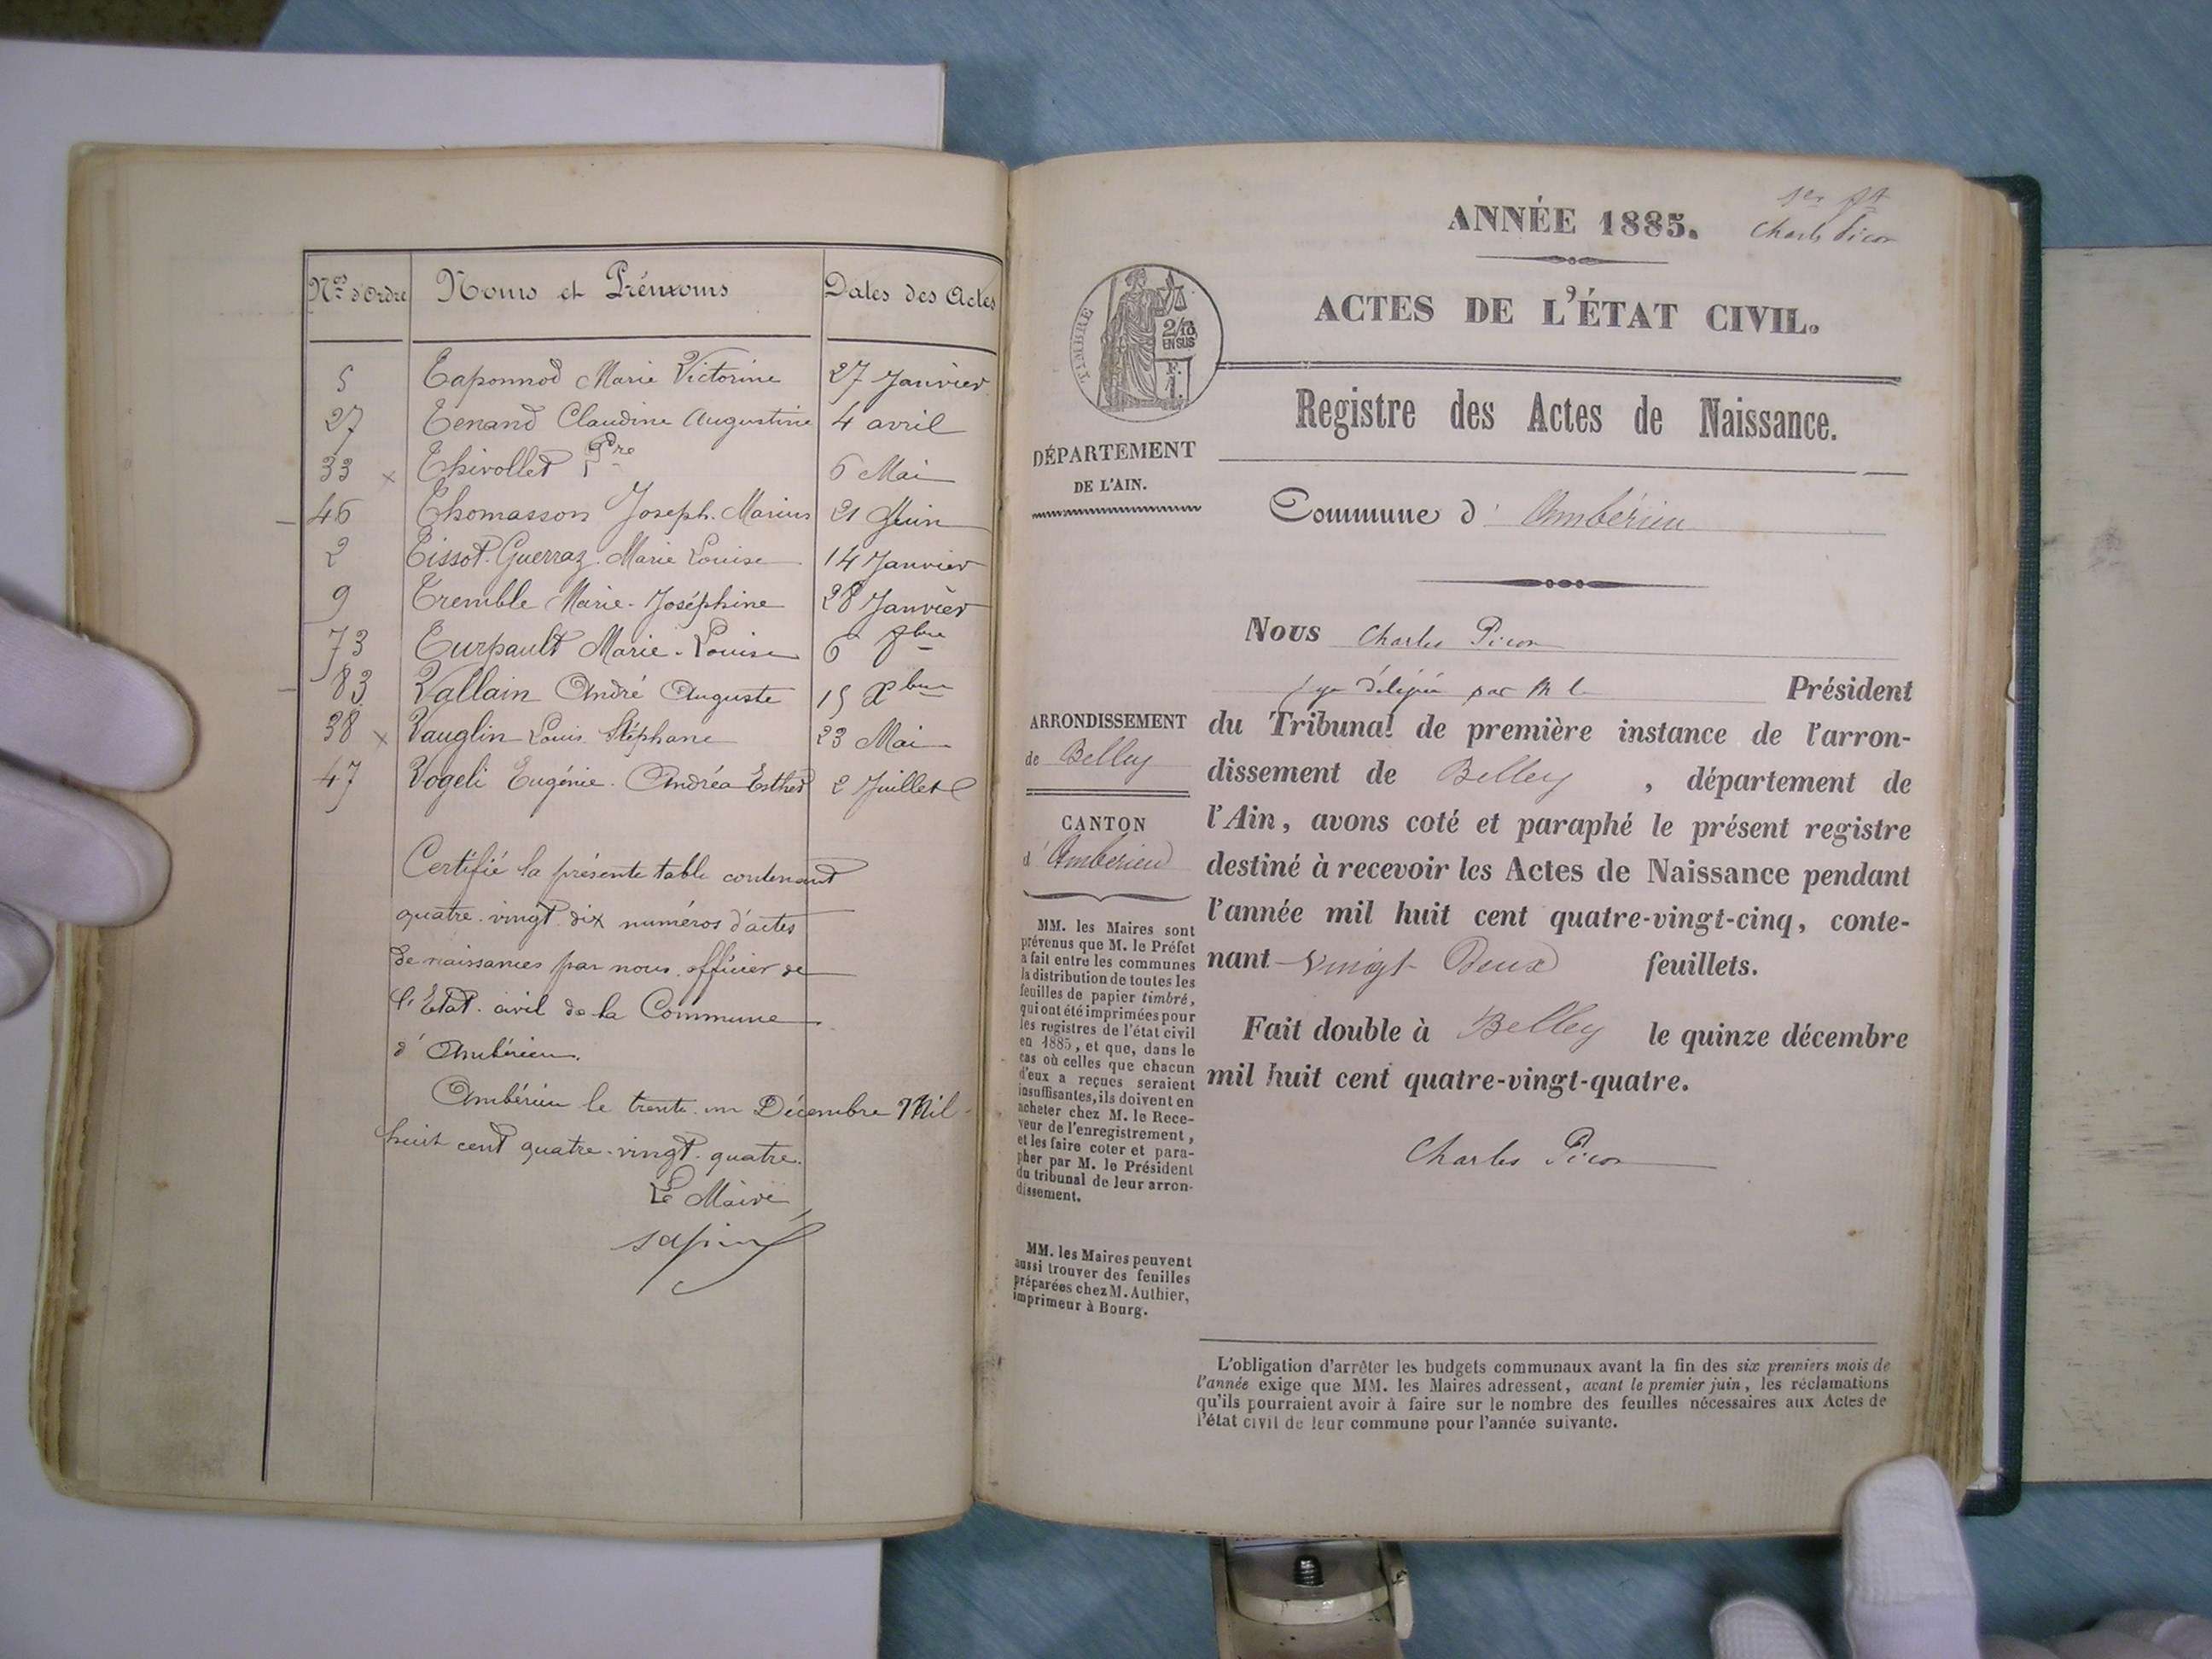 Nos d'Ordre Noms et Prénoms Dates des Actes
5 Taponnod Marie Victorine 27 Janvier
27 Tenand Claudine Augustine 4 avril
33 x Thivollet 6 Mai
46 Thomasson Joseph. Marius 21 Juin
2 Tissot-Guerraz. Marie Louise 14 Janvier
9 Tremble Marie-Joséphine 28 Janvier
73 Turpault Marie-Louise 6
83 Vallain André Auguste 15 Xbre
38 x Vauglin Louis Stéphane 23 Mai
47 Vogeli Eugénie. Andréa Esther 2 Juillet
Certifié la présente table contenant
quatre-vingt dix numéros d'actes
de naissances par nous officier de
l'Etat-civil de la Commune
d'Ambérieu.
Ambérieu le trente-un Décembre Mil-
huit cent quatre-vingt-quatre.
Le Maire
ANNÉE 1885.
Charles Picon
ACTES DE L'ÉTAT CIVIL.
TIMBRE
2/10
EN SUS
F.
1.
Registre des Actes de Naissance.
DÉPARTEMENT
DE L'AIN.
Commune d' Ambérieu
Nous Charles Picon
juge délégué par M le Président
du Tribunal de première instance de l'arron-
dissement de Belley , département de
l'Ain, avons coté et paraphé le présent registre
destiné à recevoir les Actes de Naissance pendant
l'année mil huit cent quatre-vingt-cinq, conte-
nant vingt Deux feuillets.
Fait double à Belley le quinze décembre
mil huit cent quatre-vingt-quatre.
Charles Picon
ARRONDISSEMENT
de Belley
CANTON
d'Ambérieu
MM. les Maires sont
prévenus que M. le Préfet
a fait entre les communes
la distribution de toutes les
feuilles de papier timbré,
qui ont été imprimées pour
les registres de l'état civil
en 1885, et que, dans le
cas où celles que chacun
d'eux a reçues seraient
insuffisantes, ils doivent en
acheter chez M. le Rece-
veur de l'enregistrement,
et les faire coter et para-
pher par M. le Président
du tribunal de leur arron-
dissement.
MM. les Maires peuvent
aussi trouver des feuilles
préparées chez M. Authier,
imprimeur à Bourg.
L'obligation d'arrêter les budgets communaux avant la fin des six premiers mois de
l'année exige que MM. les Maires adressent, avant le premier juin, les réclamations
qu'ils pourraient avoir à faire sur le nombre des feuilles nécessaires aux Actes de
l'état civil de leur commune pour l'année suivante.